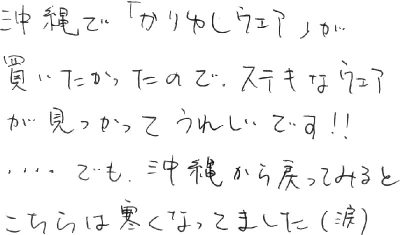 沖縄で「かりゆしウェア」が
買いたかったので、ステキなウェア
が見つかってうれしいです!!
‥‥でも、沖縄から戻ってみると
こちらは寒くなってました(涙)